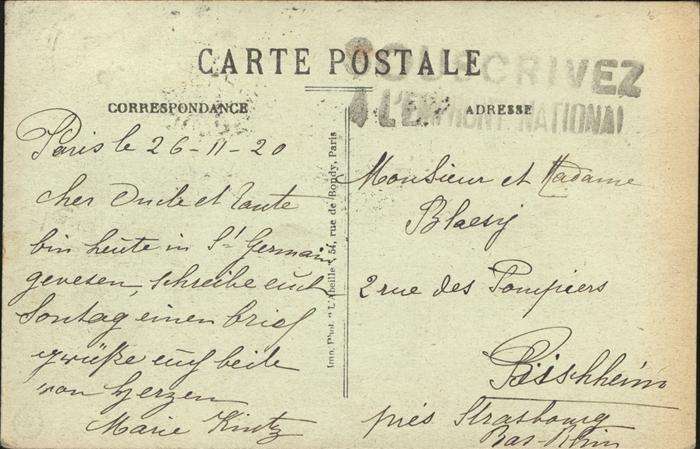 CARTE POSTALE
SOUSCRIVEZ
A L'EMPRUNT NATIONAL
CORRESPONDANCE
Paris le 26-11-20
cher Oncle et Tante
bin heute in St Germain
gewesen, schreibe euch
Sontag einen brief
grüße euch beide
von Herzen
Marie Kintz
Imp. Phot. "L'Abeille", 54, rue de Bondy, Paris
ADRESSE
Monsieur et Madame
Blaesy
2 rue des Pompiers
Bischheim
près Strasbourg
Bas-Rhin